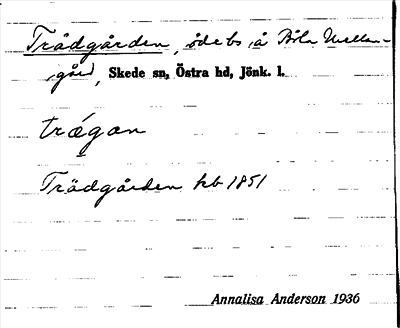 Trädgården, ödebs å Böla Mellan-
gård, Skede sn, Östra hd, Jönk. l.
trǽgan
Trädgården hb 1851
Annalisa Anderson 1936